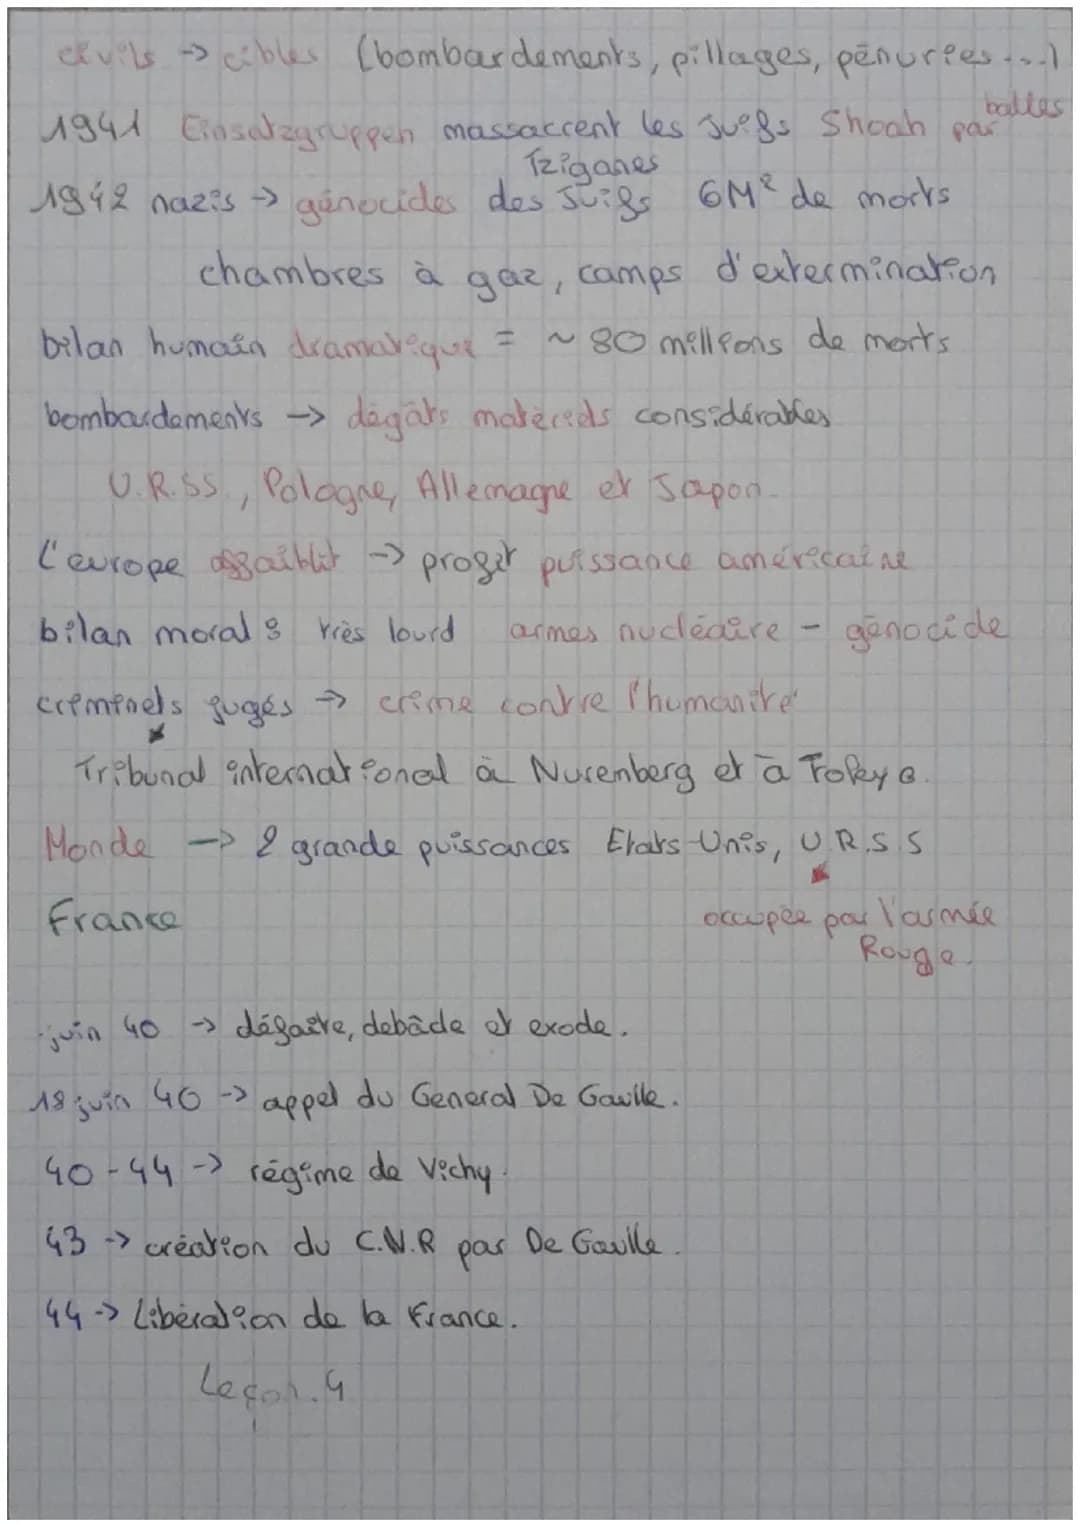 civils → cibles (bombardements, pillages, pénuries...)
1941 Einsatzgruppen massacrent les Juifs Shoah par balles
Tziganes
1942 nazis → génocides des Juifs 6M² de morts
chambres à gaz, camps d'extermination
bilan humain dramatique = ~ 80 millions de morts
bombardements → dégâts matériels considérables
U.R.SS., Pologne, Allemagne et Japon.
L'europe affaiblit → profit puissance américaine
bilan moral : très lourd armes nucléaire - génocide
criminels jugés → crime contre l'humanité
Tribunal international à Nuremberg et à Tokyo.
Monde → 2 grande puissances Etats-Unis, U.R.S.S
France occupée par l'armée
Rouge.
juin 40 → défaite, debâcle et exode.
18 juin 40 → appel du General De Gaulle.
40-44 → régime de Vichy.
43 → création du C.N.R par De Gaulle.
44 → Libération de la France.
Leçon.4